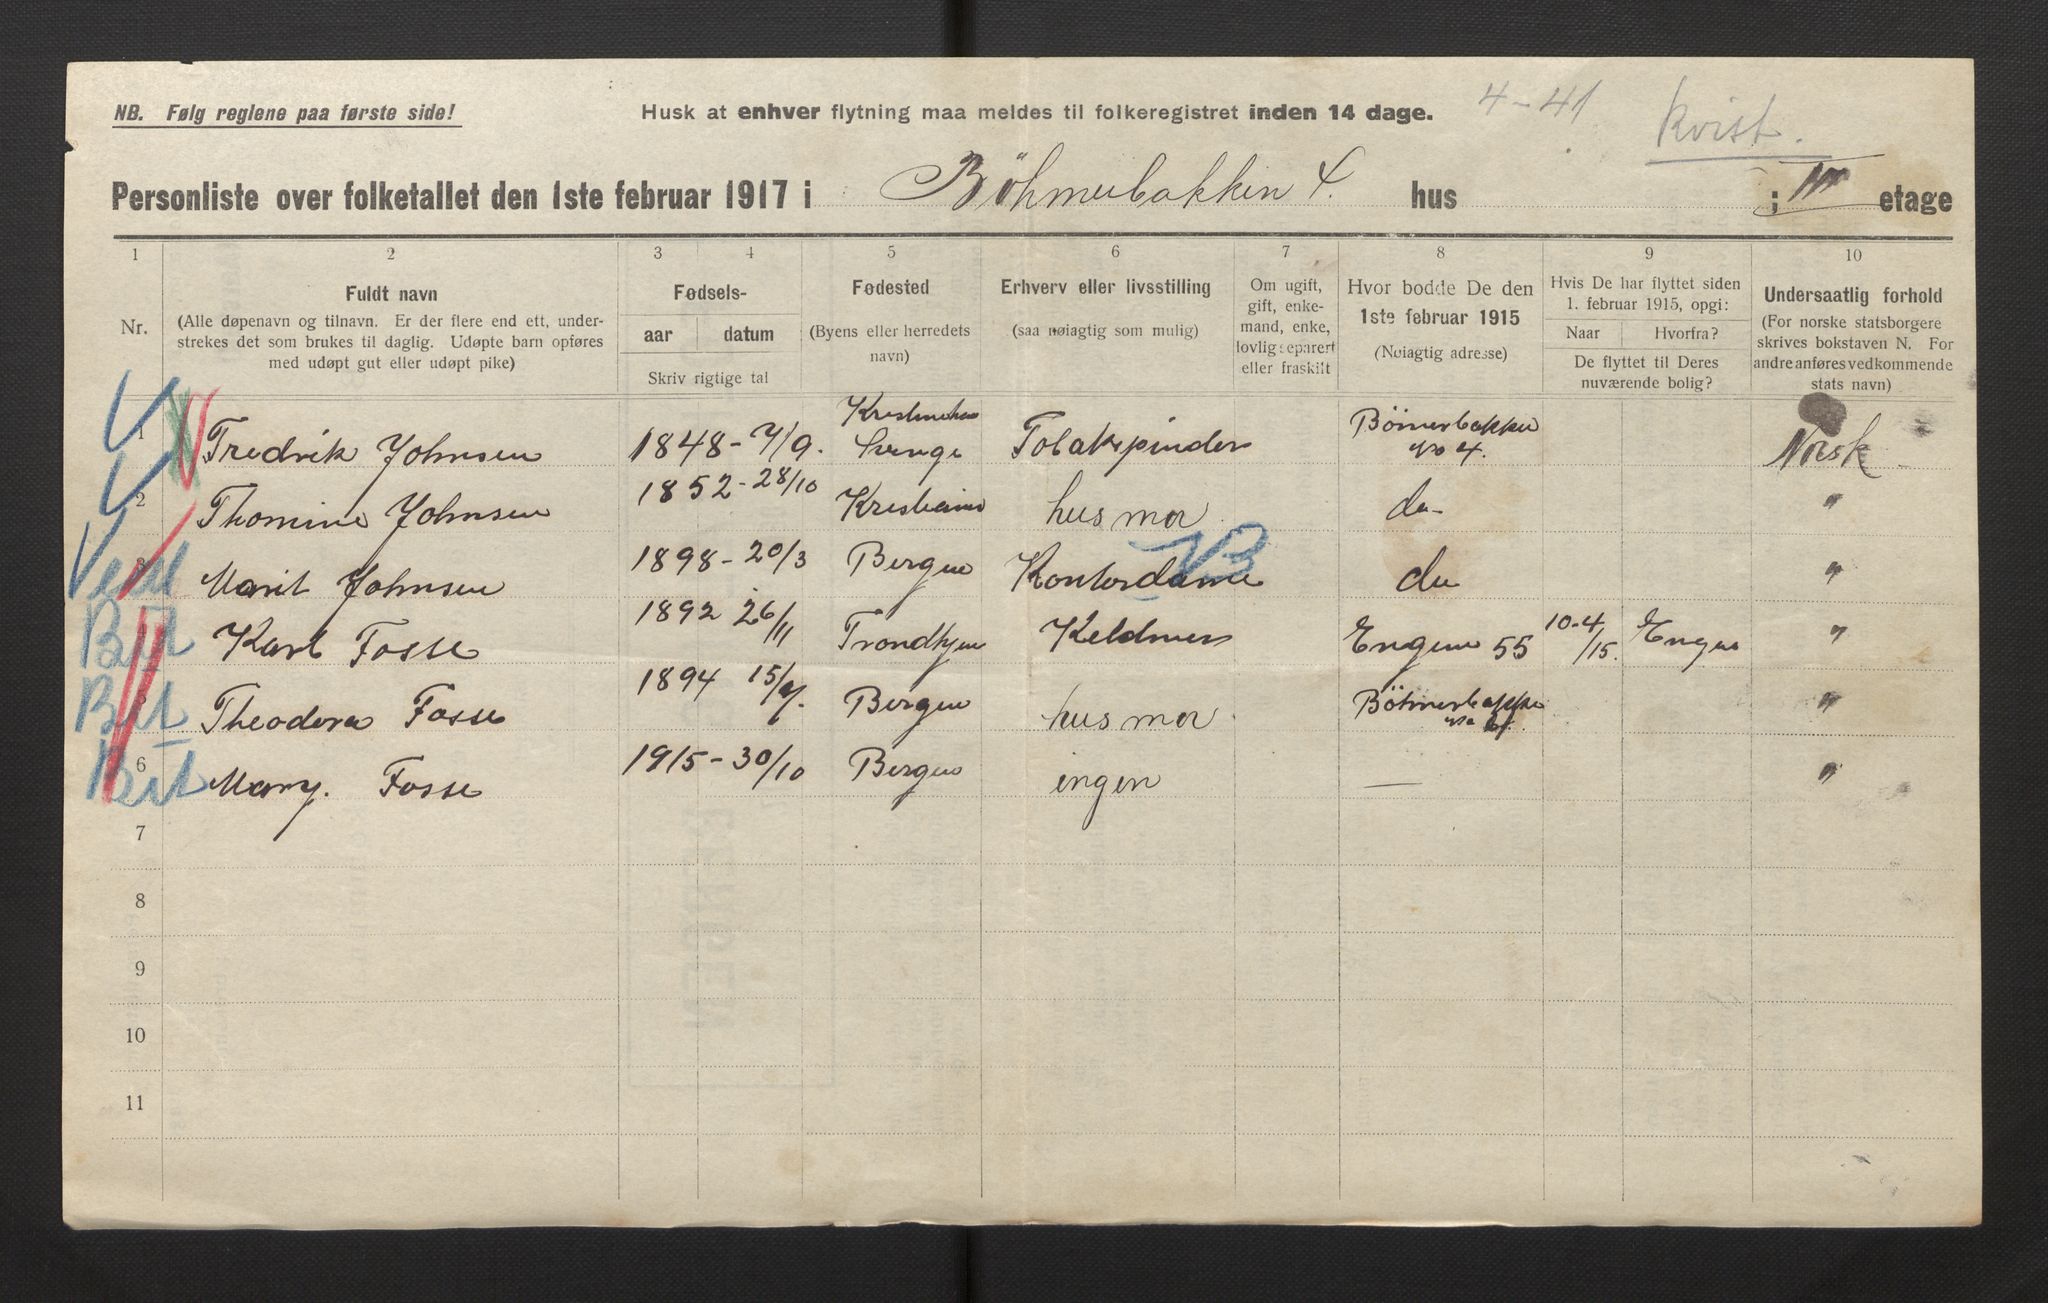 NB. Følg reglene paa første side!
Husk at enhver flytning maa meldes til folkeregistret inden 14 dage.
4-41
Kvist.
Personliste over folketallet den 1ste februar 1917 i Böhmerbakken 4. hus ; etage
1 2 3 4 5 6 7 8 9 10
Nr.
Fuldt navn
(Alle døpenavn og tilnavn. Er der flere end ett, under-
strekes det som brukes til daglig. Udøpte barn opføres
med udøpt gut eller udøpt pike)
Fødsels-
aar datum
Skriv rigtige tal
Fødested
(Byens eller herredets
navn)
Erhverv eller livsstilling
(saa nøiagtig som mulig)
Om ugift,
gift, enke-
mand, enke,
lovlig separert
eller fraskilt
Hvor bodde De den
1ste februar 1915
(Nøiagtig adresse)
Hvis De har flyttet siden
1. februar 1915, opgi:
Naar Hvorfra?
De flyttet til Deres
nuværende bolig?
Undersaatlig forhold
(For norske statsborgere
skrives bokstaven N. For
andre anføres vedkommende
stats navn)
1 Fredrik Johnsen 1848-7/9. Kristinehav Sverige Tobakspinder Börnerbakken No 4. Norsk
2 Thomine Johnsen 1852-28/10 Kristiania husmor do- "
3 Marit Johnsen 1898-20/3 Bergen Kontordame do "
4 Karl Fosse 1892 26/11 Trondhjem Keldner Engene 55 10-4/15. Engen "
5 Theodora Fosse 1894 15/ Bergen husmor Böhmerbakken No 4. "
6 Mary. Fosse 1915-30/10 Bergen ingen — "
7
8
9
10
11